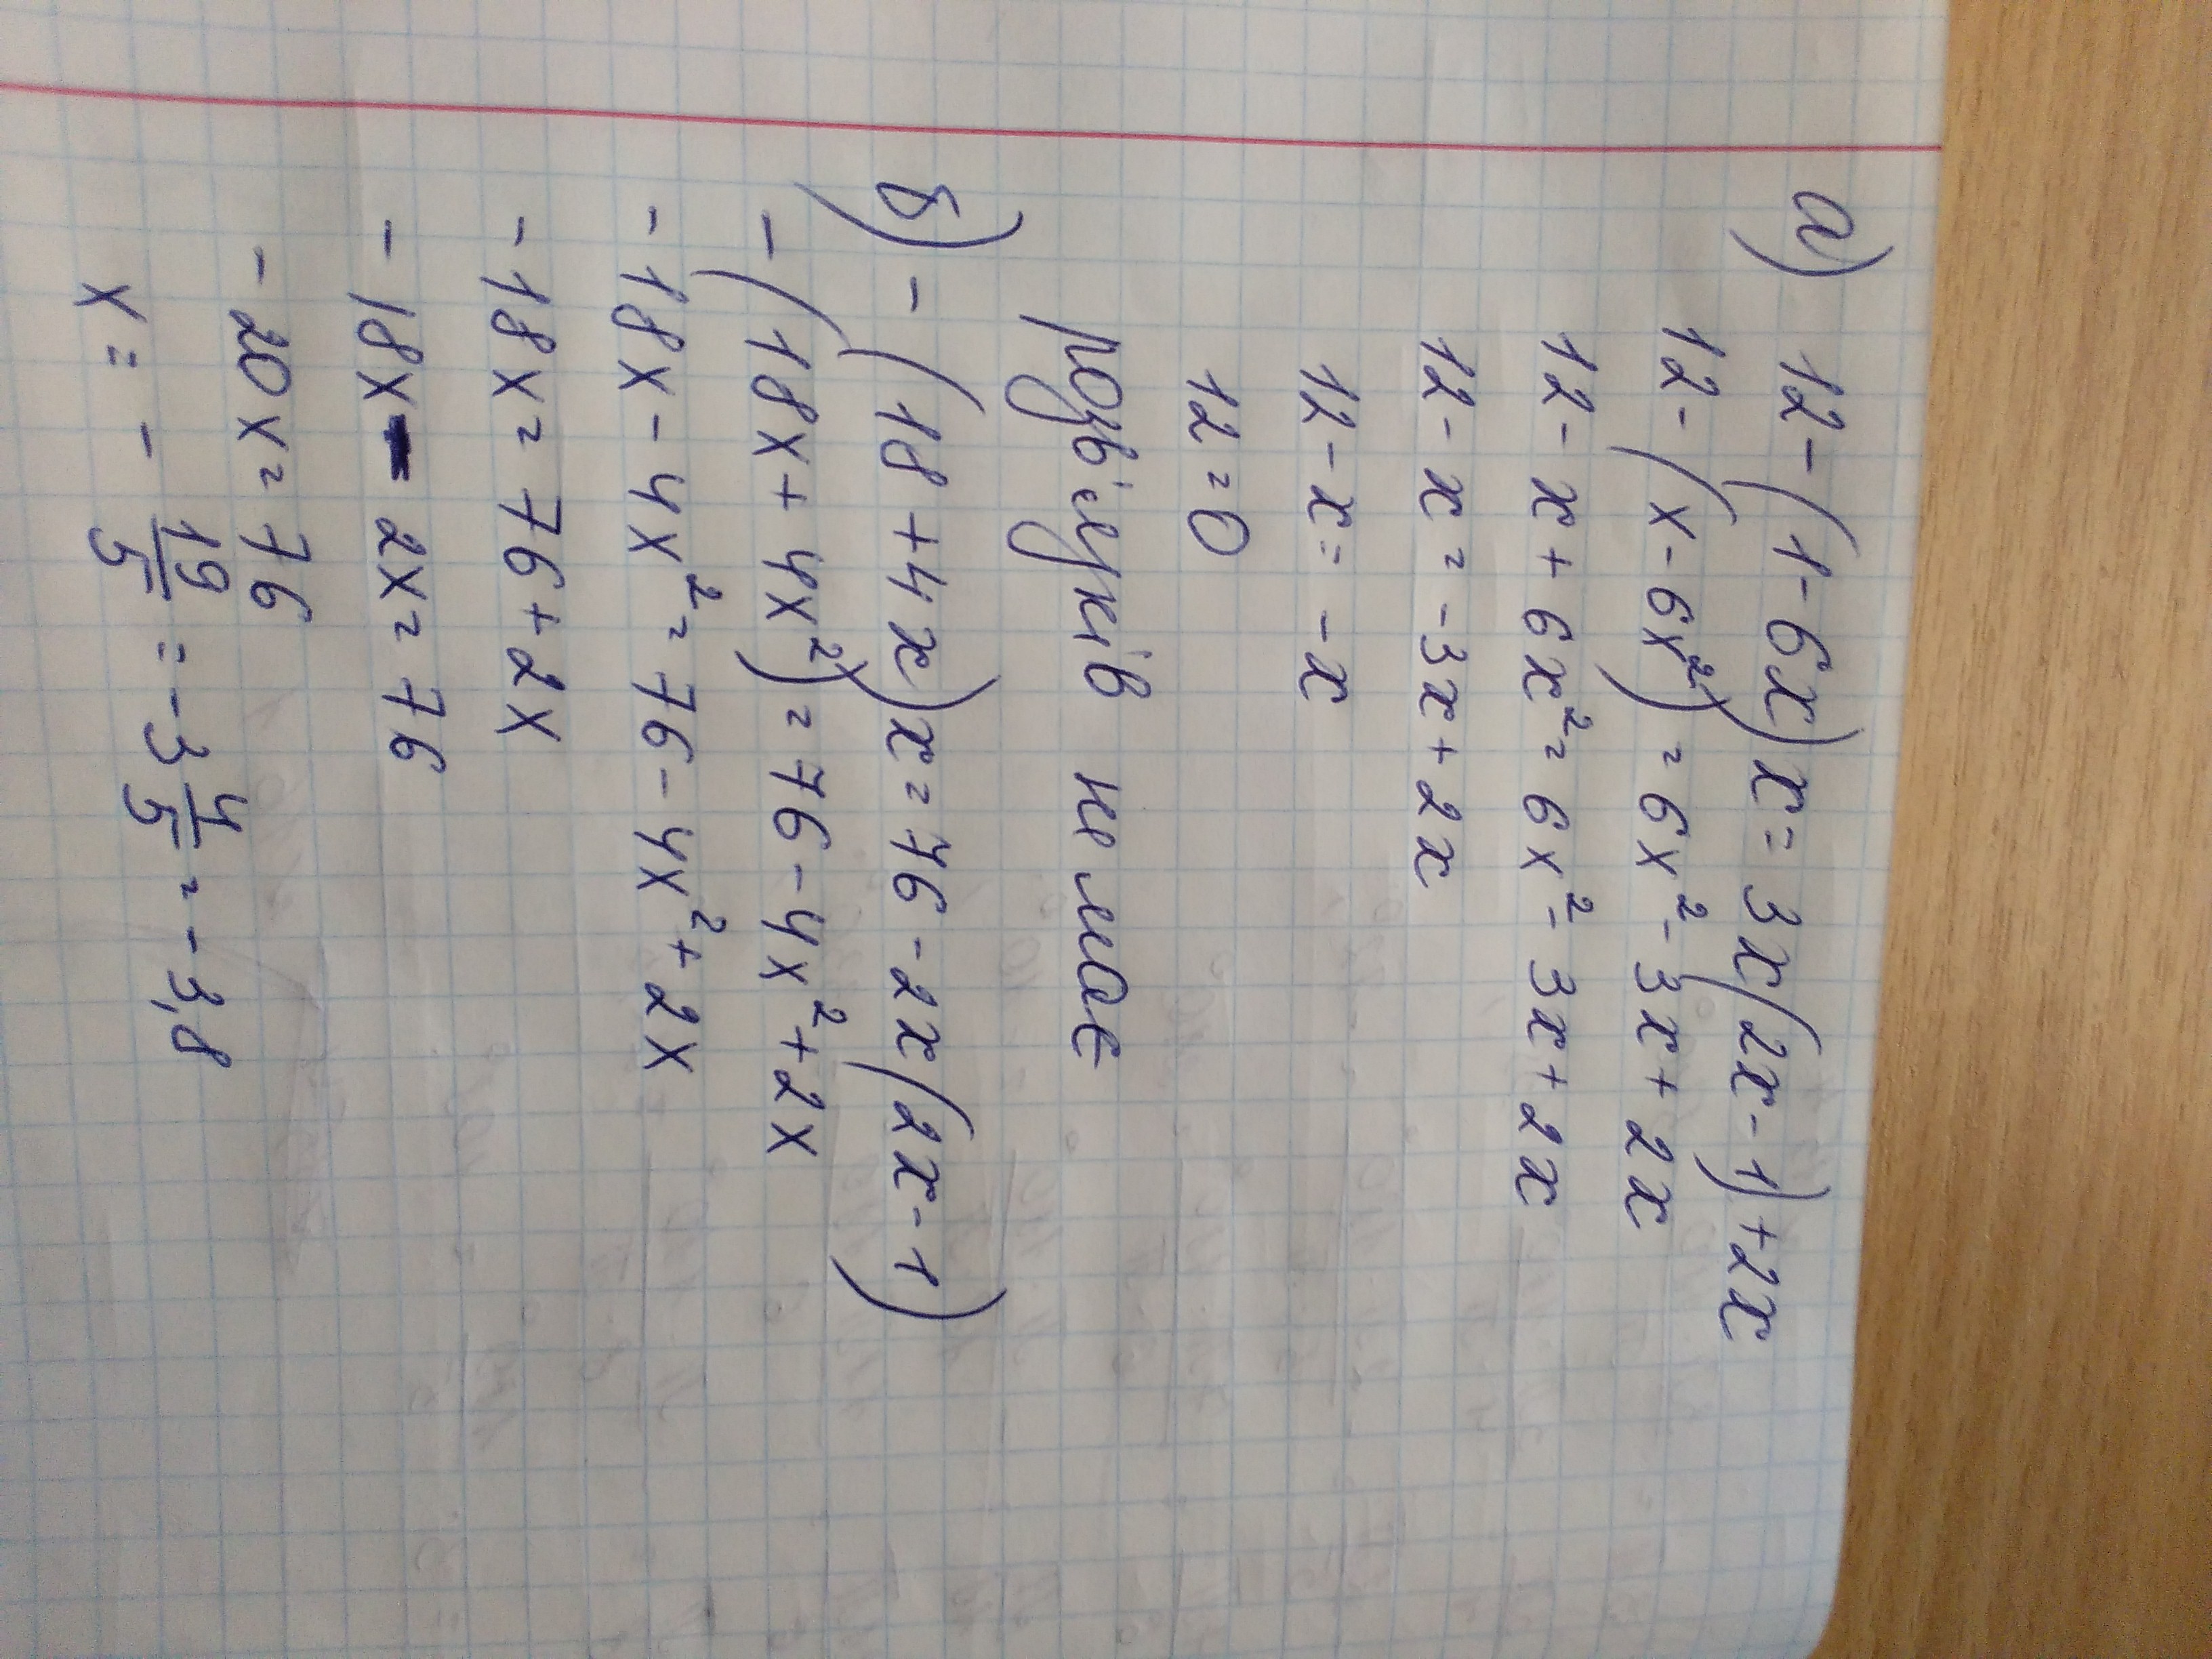 а) 12-(1-6x)x=3x(2x-1)+2x
12-(x-6x²)=6x²-3x+2x
12-x+6x²=6x²-3x+2x
12-x=-3x+2x
12-x=-x
12=0
розв'язків не має
б) -(18+4x)x=76-2x(2x-1)
-(18x+4x²)=76-4x²+2x
-18x-4x²=76-4x²+2x
-18x=76+2x
-18x-2x=76
-20x=76
x=-19/5=-3 4/5=-3,8